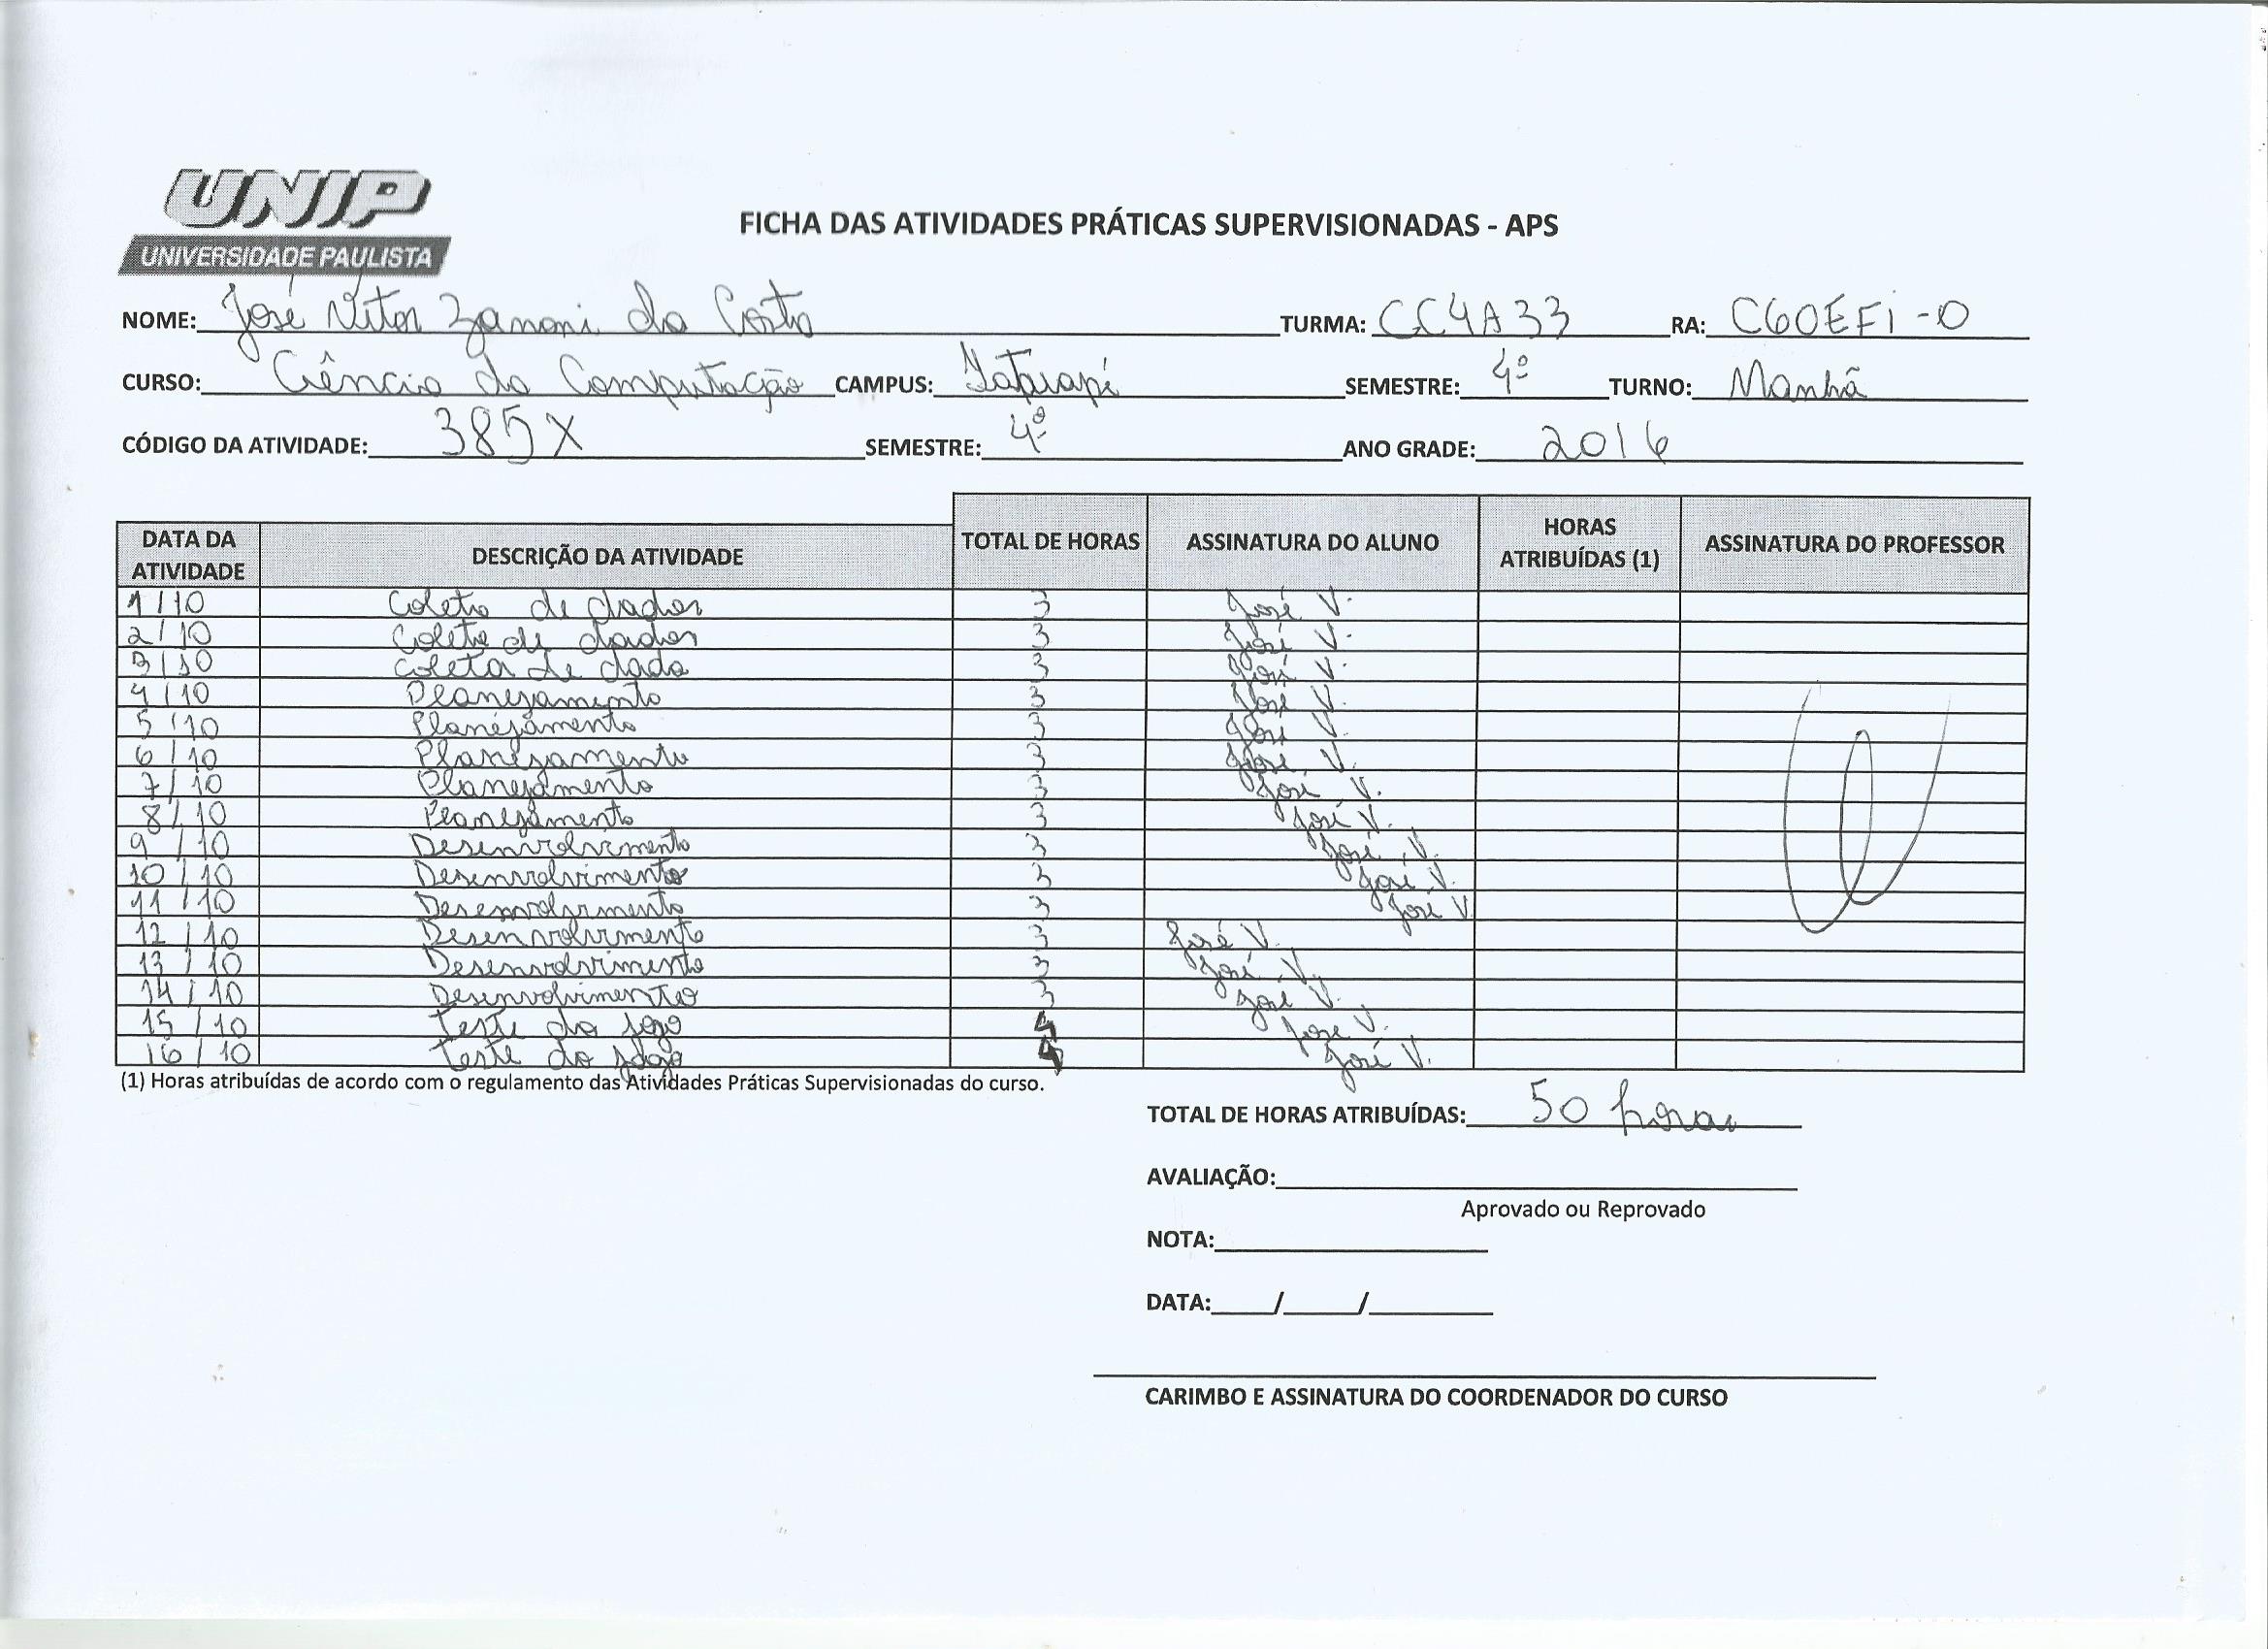 UNIP
UNIVERSIDADE PAULISTA
FICHA DAS ATIVIDADES PRÁTICAS SUPERVISIONADAS - APS
NOME: José Vitor Zanoni da Costa TURMA: CC4A33 RA: C60EFI-0
CURSO: Ciência da Computação CAMPUS: Tatuapé SEMESTRE: 4º TURNO: Manhã
CÓDIGO DA ATIVIDADE: 385X SEMESTRE: 4º ANO GRADE: 2016
DATA DA ATIVIDADE DESCRIÇÃO DA ATIVIDADE TOTAL DE HORAS ASSINATURA DO ALUNO HORAS ATRIBUÍDAS (1) ASSINATURA DO PROFESSOR
1/10 Coleta de dados 3 José V.
2/10 Coleta de dados 3 José V.
3/10 Coleta de dado 3 José V.
4/10 Planejamento 3 José V.
5/10 Planejamento 3 José V.
6/10 Planejamento 3 José V.
7/10 Planejamento 3 José V.
8/10 Planejamento 3 José V.
9/10 Desenvolvimento 3 José V.
10/10 Desenvolvimento 3 José V.
11/10 Desenvolvimento 3 José V.
12/10 Desenvolvimento 3 José V.
13/10 Desenvolvimento 3 José V.
14/10 Desenvolvimento 3 José V.
15/10 Teste do jogo 4 José V.
16/10 Teste do jogo 4 José V.
(1) Horas atribuídas de acordo com o regulamento das Atividades Práticas Supervisionadas do curso.
TOTAL DE HORAS ATRIBUÍDAS: 50 horas
AVALIAÇÃO:
Aprovado ou Reprovado
NOTA:
DATA: / /
CARIMBO E ASSINATURA DO COORDENADOR DO CURSO